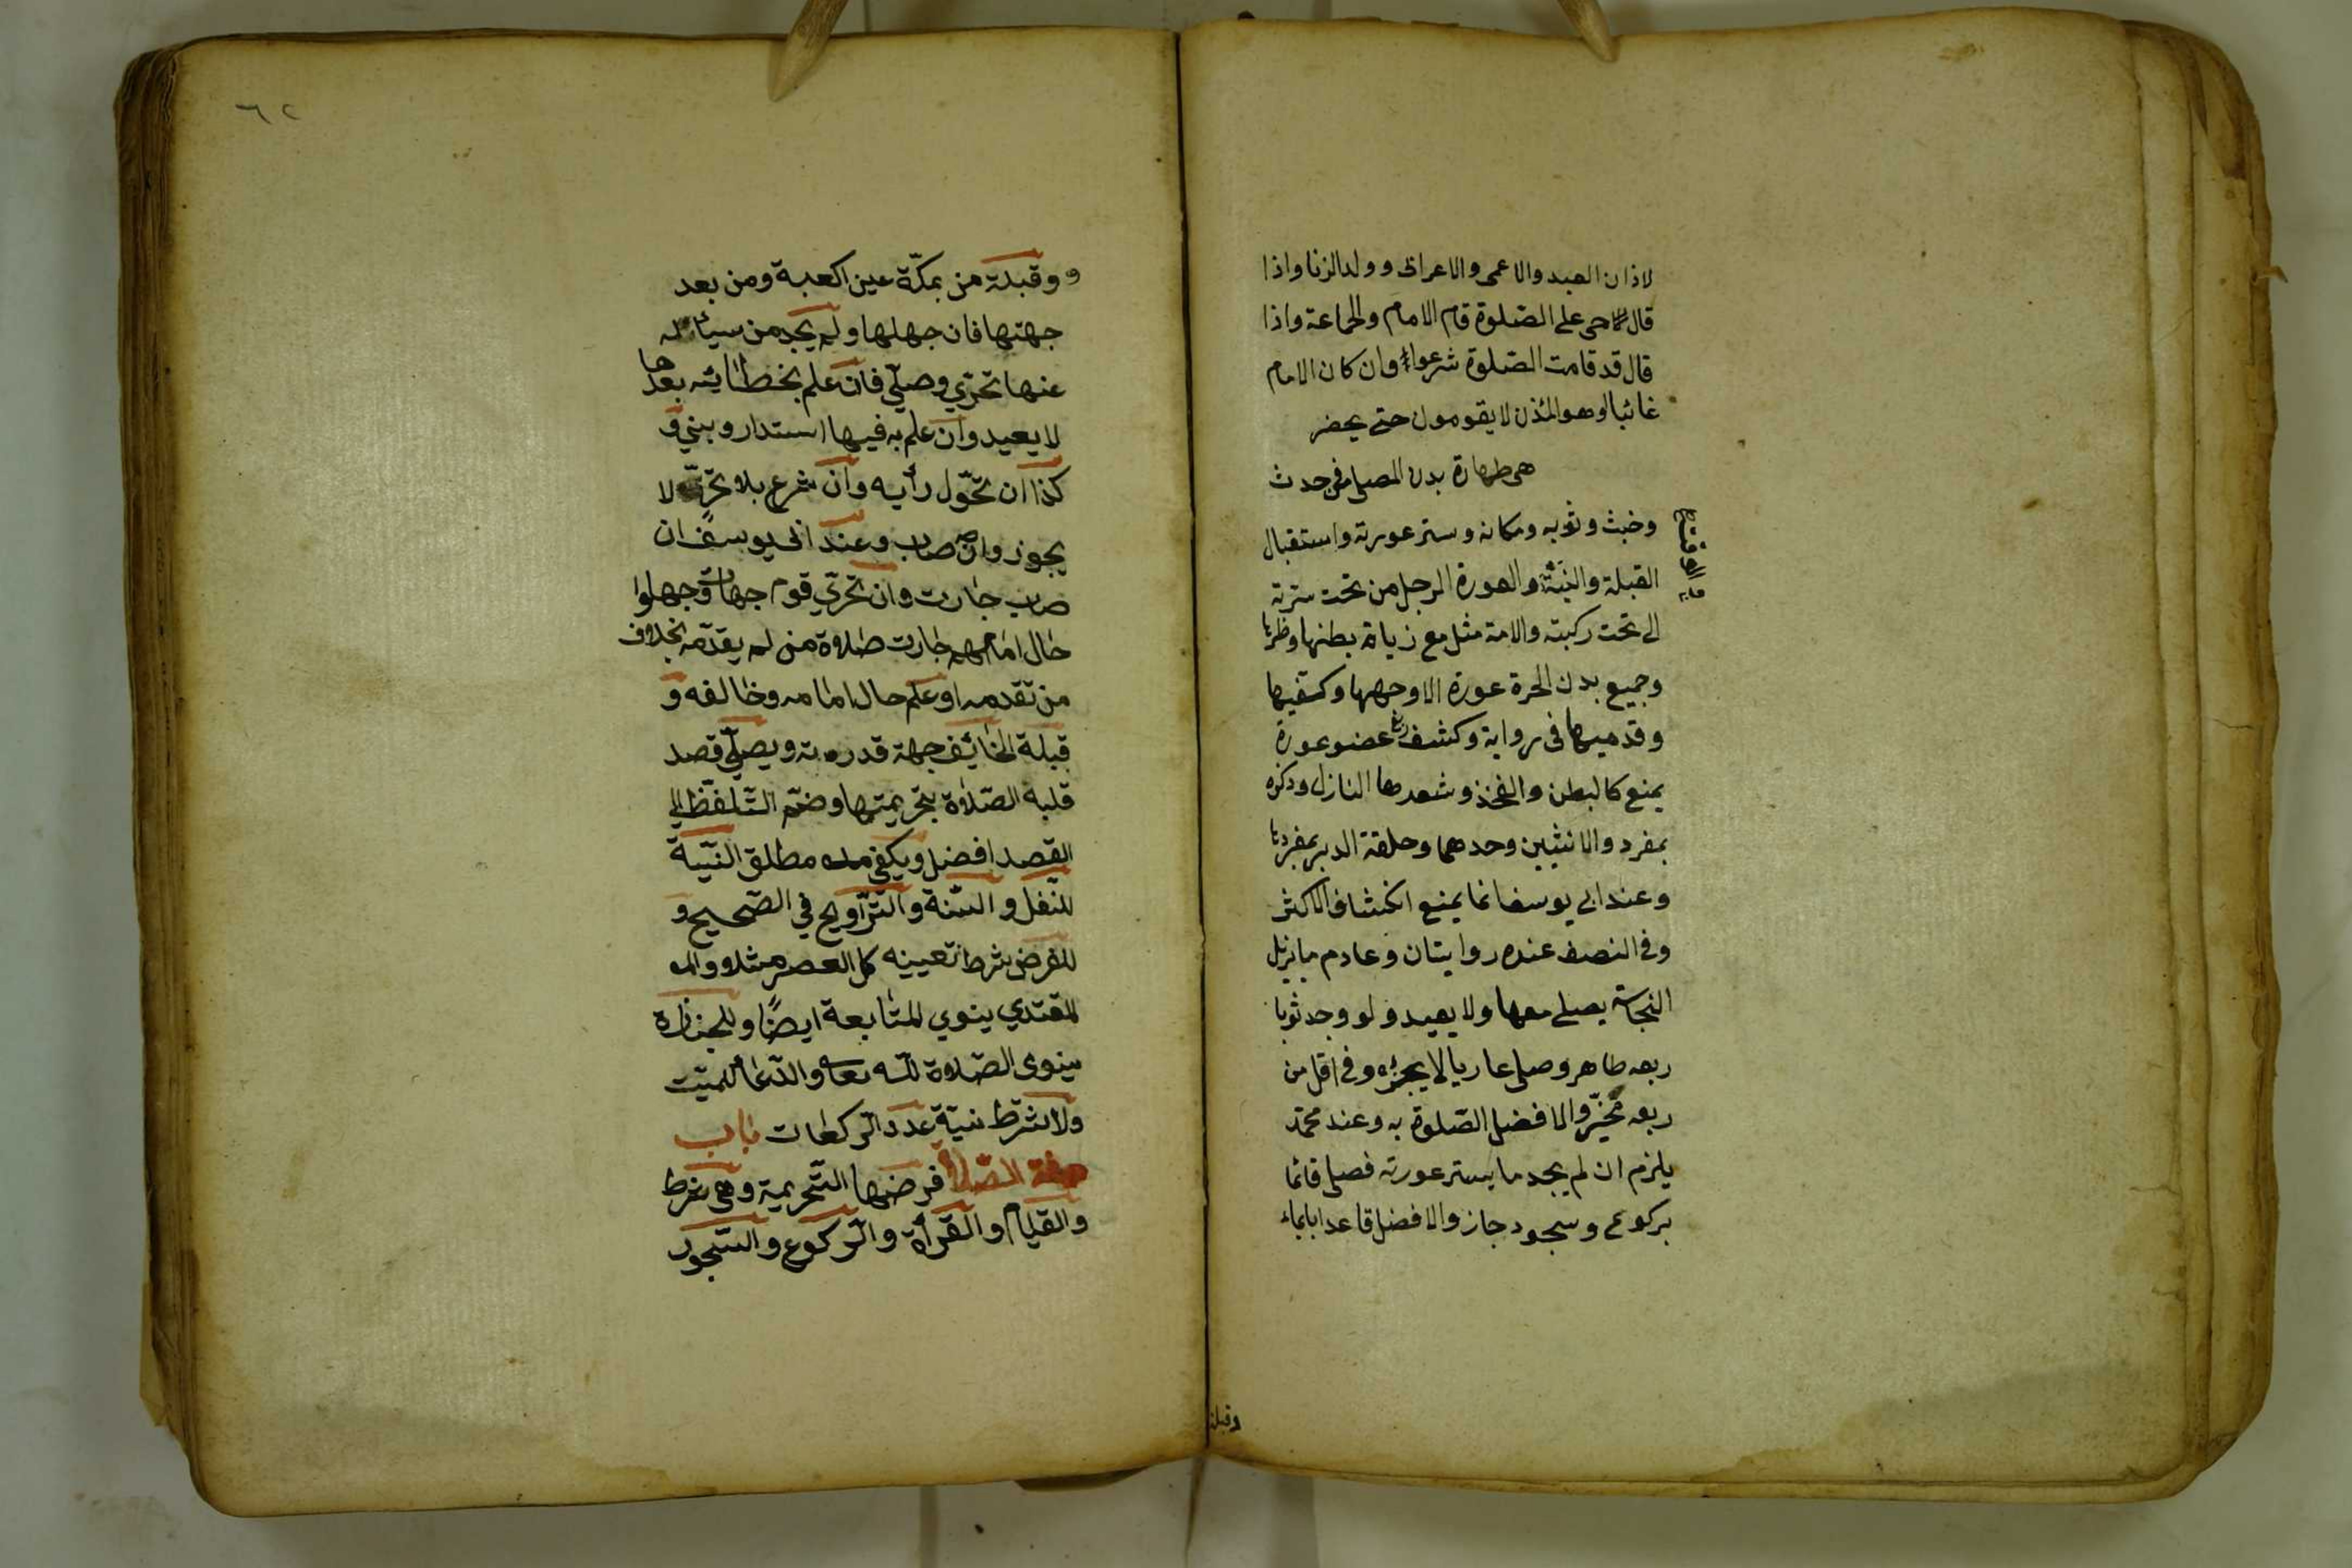 لاذان العبد والاعمى والاعرابى وولد الزنا واذا
قال حى على الصّلوة قام الامام والجماعة واذا
قال قد قامت الصّلوة شرعوا وان كان الامام
غائبا او هو المؤذن لا يقومون حتى يحضر
هى طهارة بدن المصلى من حدث
وخبث وثوبه ومكانه وستر عورته واستقبال
القبلة والنيّة والعورة للرجل من تحت سترته
الى تحت ركبته والامة مثله مع زيادة بطنها وظهرها
وجميع بدن الحرة عورة الا وجهها وكفيها
وقدميها فى رواية وكشف ربع عضو عورة
يمنع كالبطن والفخذ وشعرها النازل وذكره
بمفرده والانثيين وحدهما وحلقة الدبر بمفردها
وعند ابى يوسف انما يمنع انكشاف الاكثر
وفى النصف عنده روايتان وعادم ما يزيل
النجاسة يصلى معها ولا يعيد ولو وجد ثوبا
ربعه طاهر وصلى عاريا لا يجزئه وفى اقل من
ربعه مخيّر والافضل الصّلوة به وعند محمّد
يلزم ان لم يجد ما يستر عورته فصلى قائما
بركوع وسجود جاز والافضل قاعدا بايماء
وقبلة
٦٢
و وقبلة من بمكّة عين الكعبة ومن بعد
جهتها فان جهلها ولم يجد من سيأله
عنها تحرّي وصلّي فان علم بخطائه بعدها
لا يعيد وان علم به فيها استدار وبني و
كذا ان تحّول رأيه وان شرع بلا تحرّ لا
يجوز وان صاب وعند ابى يوسف ان
صاب جازت وان تحرّي قوم جهات وجهلوا
حال امامهم جازت صلاة من لم يقدّمه بخلاف
من تقدمه او علم حال امامه وخالفه و
قبلة الخائف جهة قدرته ويصلّي قصد
قلبه الصّلاة بتحريمتها وضّم التّلفّظ الي
القصد افضل ويكفي مطلق النّيّة
للنّفل والسّنة والتّراويح في الصّحيح و
للفرض شرط تعيينه كالعصر مثلا و
المقتدي ينوي المتابعة ايضًا وللجنازة
ينوى الصّلاة للّه تعا والدّعأ للميّت
ولا شرط نيّة عدد الرّكعات باب
صفة الصّلاة فرضها التّحريمة وهى شرط
والقيام والقرأة والرّكوع والسّجود